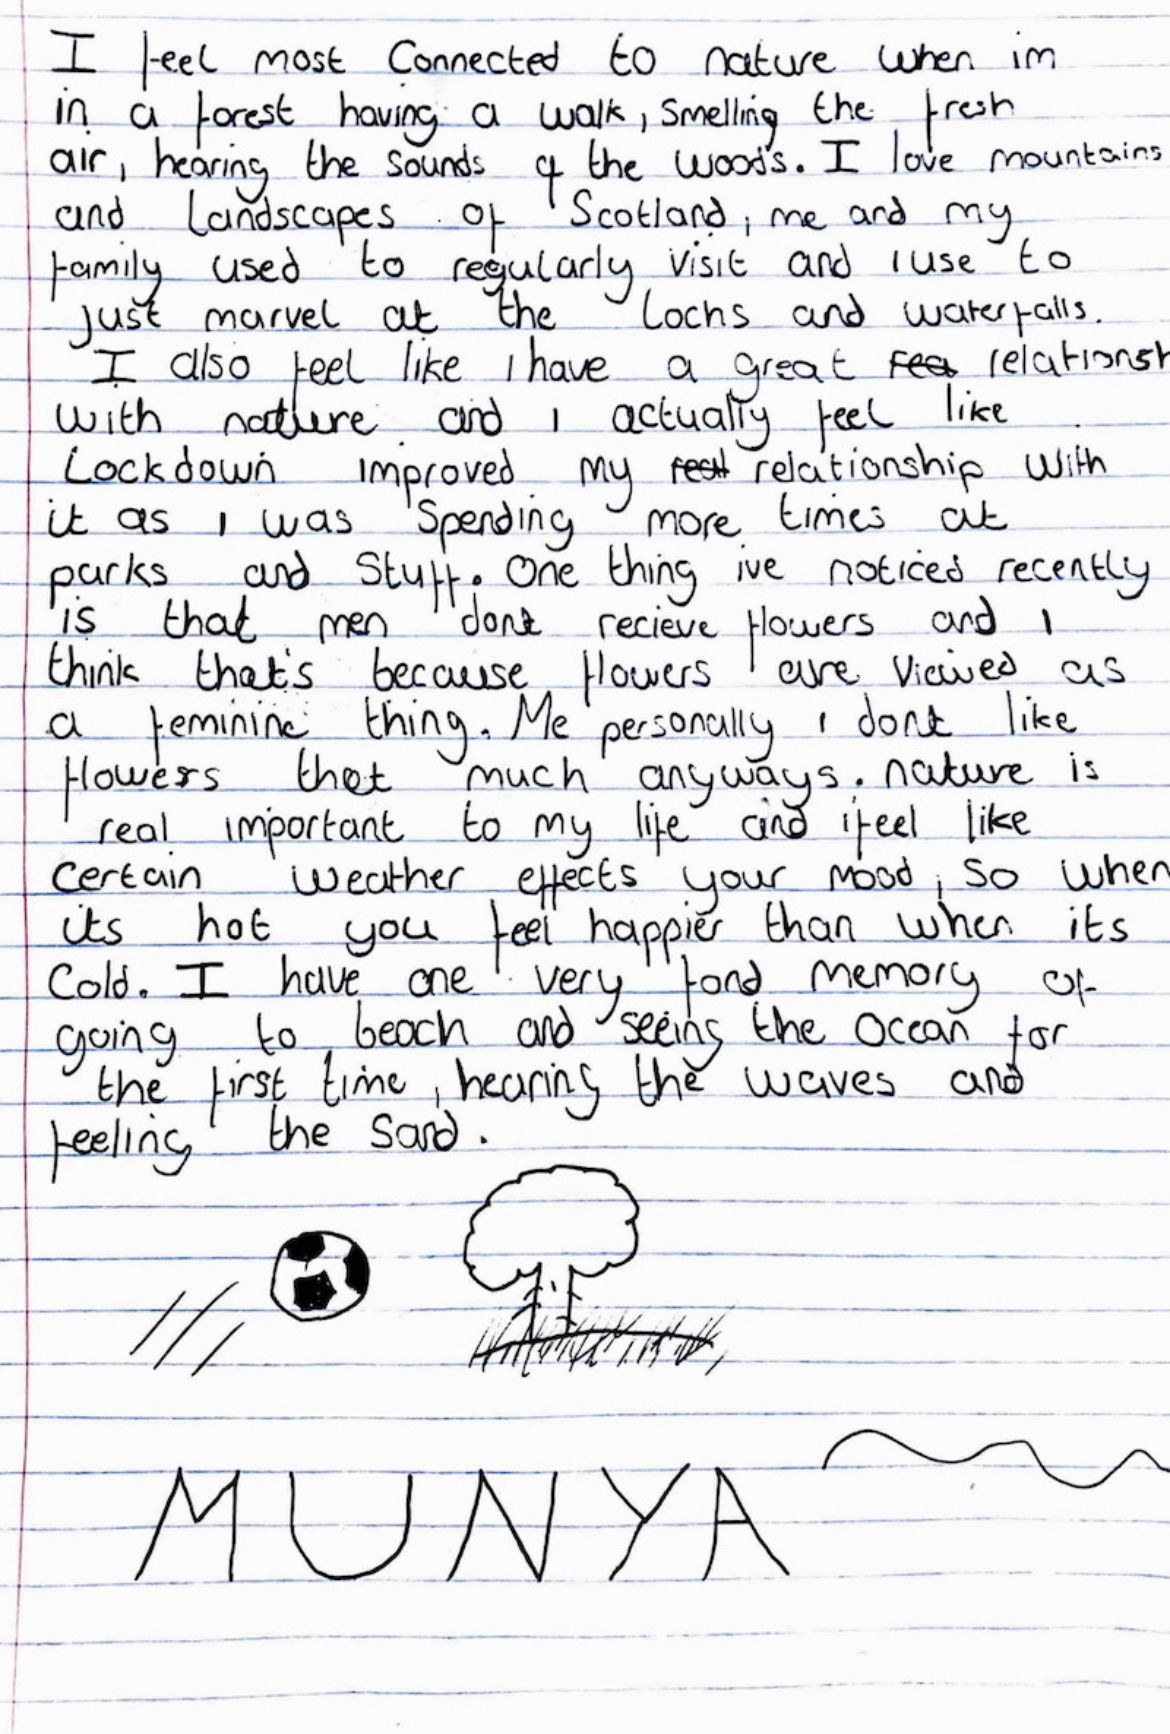 I feel most Connected to nature when im
in a forest having a walk, Smelling the fresh
air, hearing the sounds of the woods. I love mountains
and Landscapes of Scotland, me and my
family used to regularly visit and I use to
just marvel at the Lochs and waterfalls.
I also feel like I have a great rea relationsh
with nature and I actually feel like
Lockdown improved my real relationship with
it as I was Spending more times at
parks and Stuff. One thing ive noticed recently
is that men dont recieve flowers and I
think that's because flowers are viewed as
a feminine thing. Me personally I dont like
flowers that much anyways. nature is
real important to my life and i feel like
certain weather effects your mood, so when
its hot you feel happier than when its
Cold. I have one very fond memory of
going to beach and seeing the Ocean for
the first time, hearing the waves and
feeling the Sand.
MUNYA